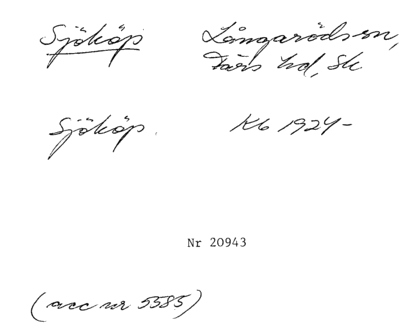 Sjököp Långaröds sn,
Färs hd, Sk.
Sjököp. Kb 1924-
Nr 20943
(acc nr 5585)